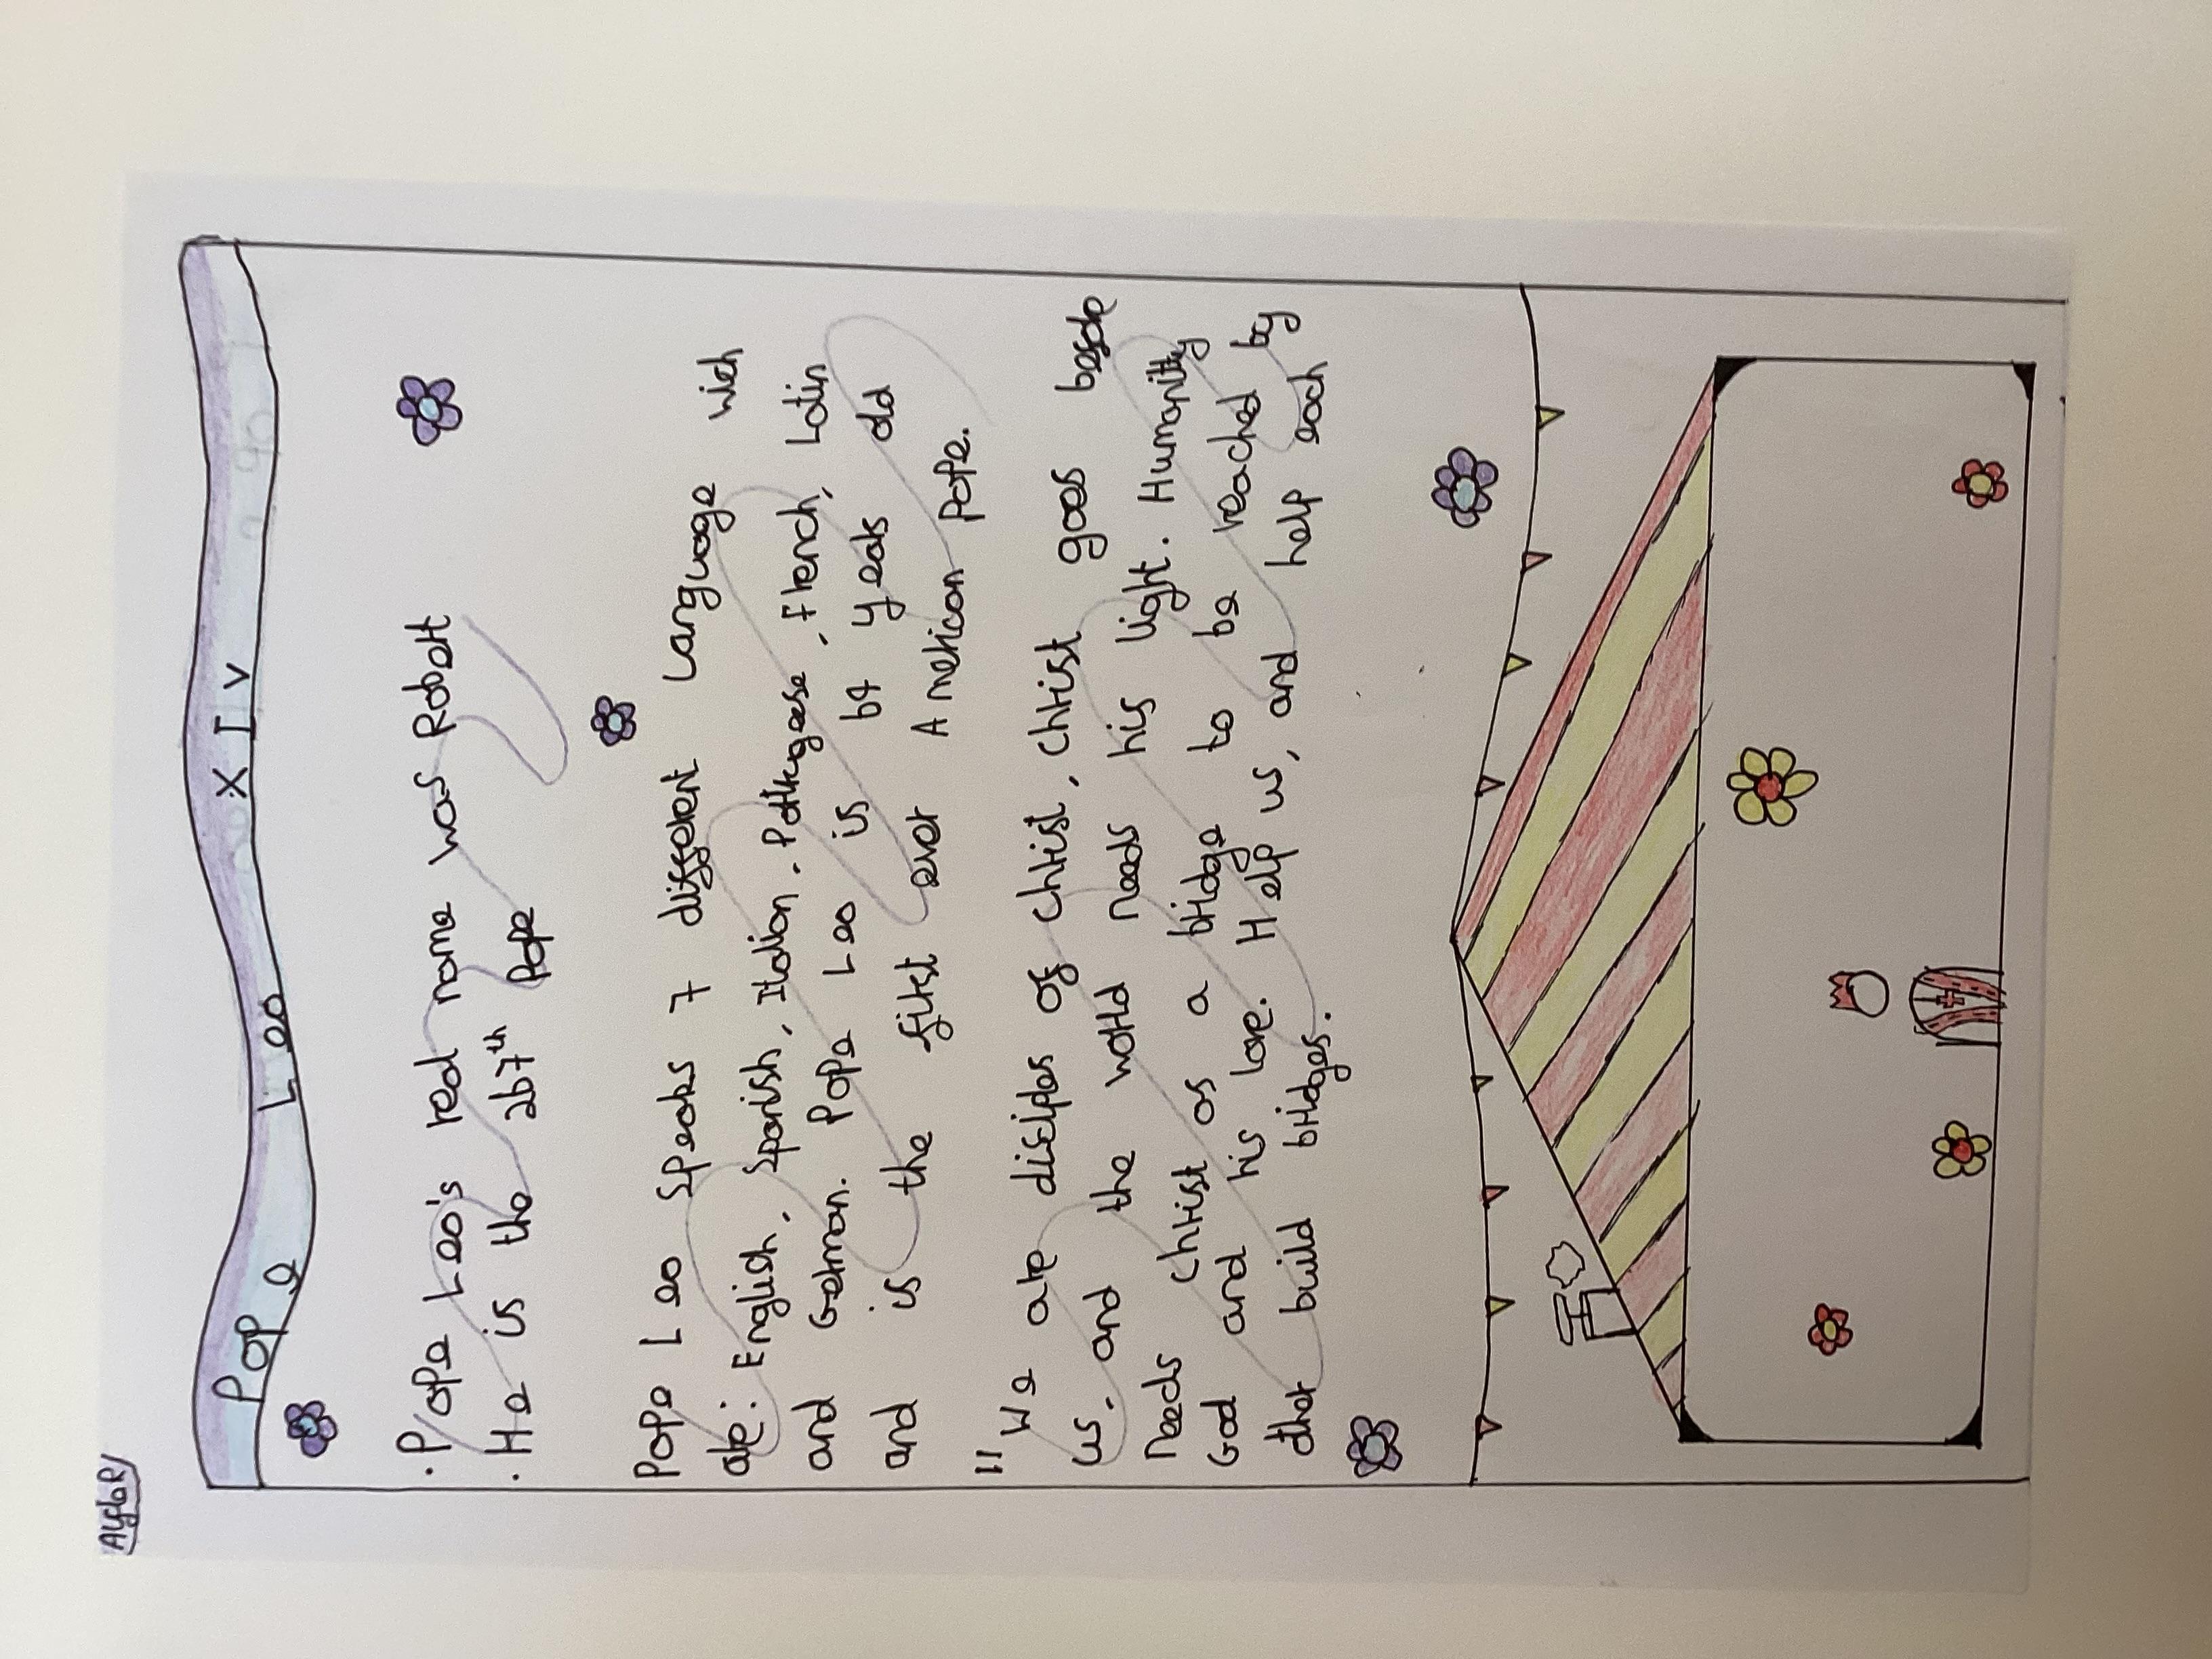 Aygbor
Pope Leo XIV
. Pope Leo's real name was Robert
. He is the 267th Pope
Pope Leo speaks 7 different Language wich
are: English, Spanish, Italian, Portugese, French, Latin
and German. Pope Leo is 69 years old
and is the first ever American Pope.
"We are disciples of Christ, Christ goes before
us, and the world needs his light. Humanity
needs Christ as a bridge to be reached by
God and his love. Help us, and help each
other build bridges.